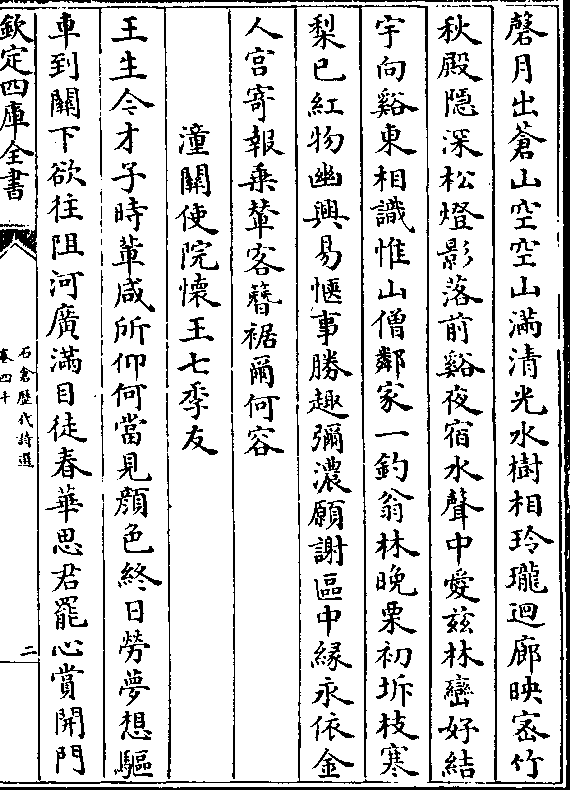 磬月出蒼山空空山滿清光水樹相玲瓏迴廊映宻竹
秋殿隱深松燈影落前谿夜宿水聲中愛兹林巒好結
宇向谿東相識惟山僧鄰家一釣翁林晚栗初坼枝寒
梨已紅物幽興易愜事勝趣彌濃願謝區中緣永依金
人宫寄報乗輦客簪裾爾何容
潼關使院懐王七季友
王生今才子時輩咸所仰何當見顔色終日勞夢想驅
車到關下欲往阻河廣滿目徒春華思君罷心賞開門
欽定四庫全書
石倉歴代詩選
卷四十
二